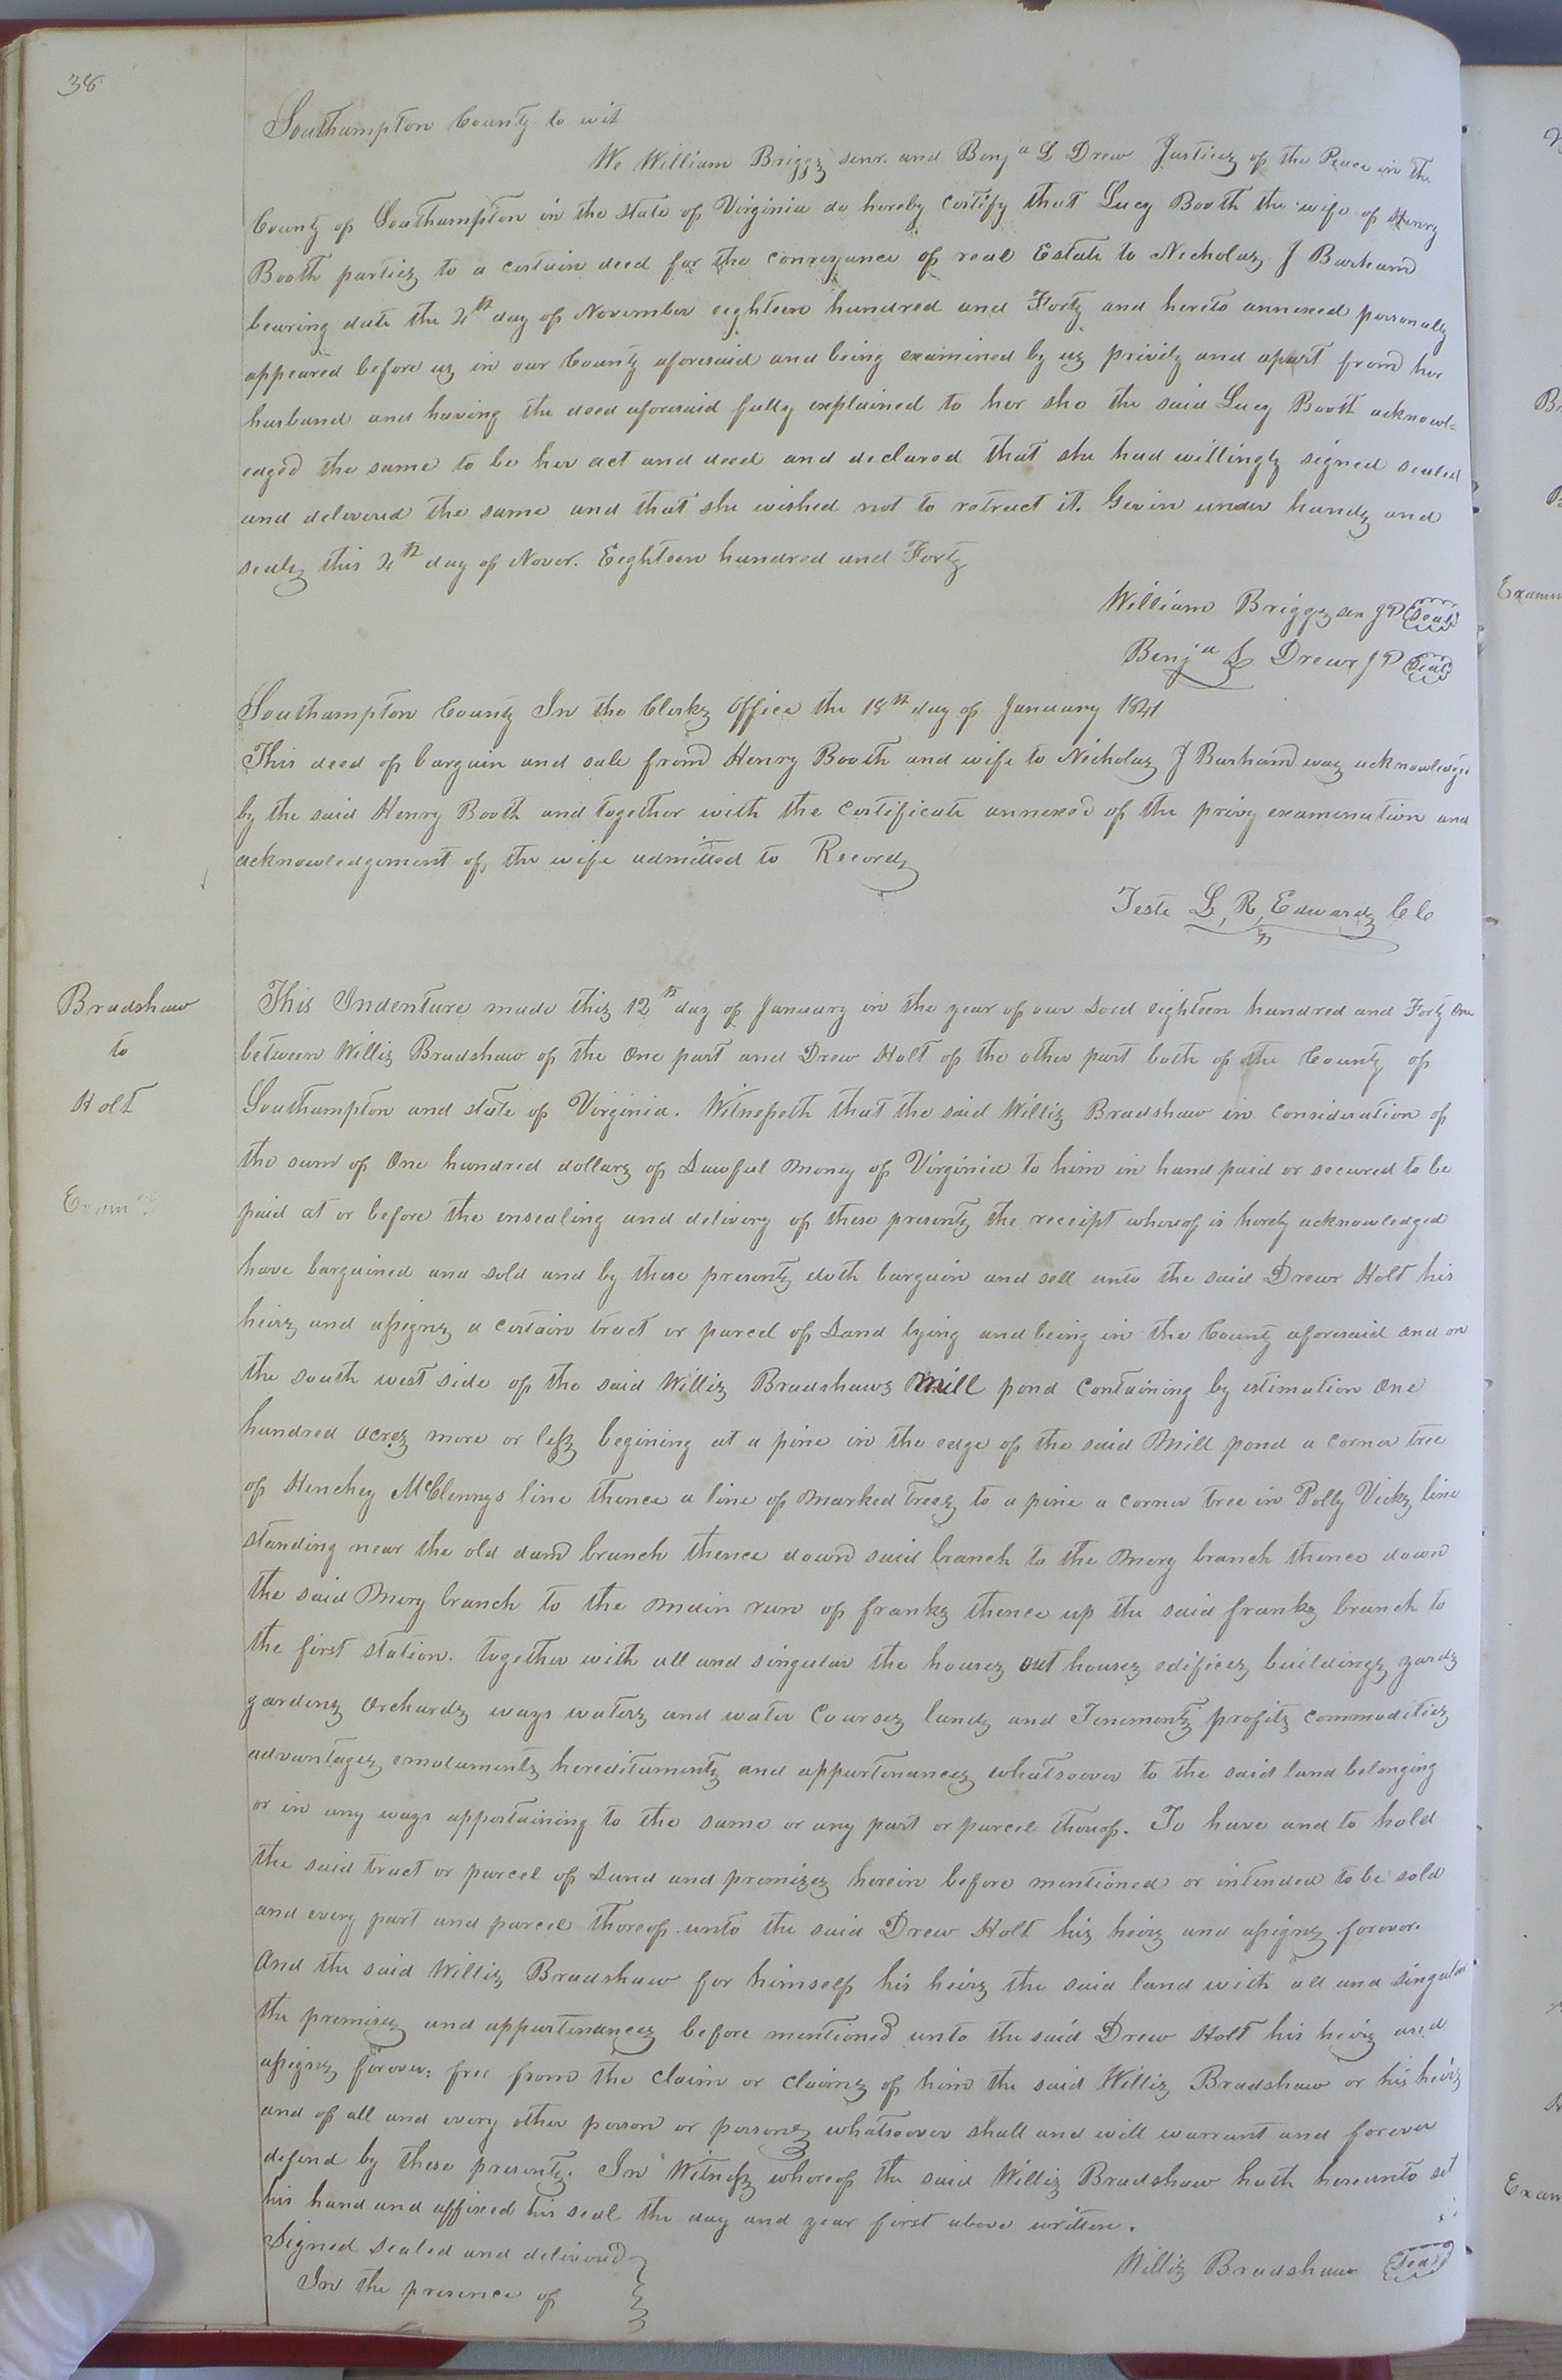 38
Southampton County to wit
We William Briggs senr. and Benja L Drew Justices of the Peace in the
County of Southampton in the state of Virginia do hereby certify that Lucy Booth the wife of Henry
Booth parties to a certain deed for the conveyance of real Estate to Nicholas J Barham
bearing date the 2th day of November eighteen hundred and Forty and hereto annexed personally
appeared before us in our County aforesaid and being examined by us privily and apart from her
husband and having the deed aforesaid fully explained to her she the said Lucy Booth acknowl=
edged the same to be her act and deed and declared that she had willingly signed sealed
and delivered the same and that she wished not to retract it. Given under hands and
seals this 2th day of Novor. Eighteen hundred and Forty
William Briggs sen JP Seal
Benja L Drew JP Seal
Southampton County In the Clerks Office the 18th day of January 1841
This deed of bargain and sale from Henry Booth and wife to Nicholas J Barham was acknowledged
by the said Henry Booth and together with the certificate annexed of the privy examination and
acknowledgement of the wife admitted to Record
Teste L, R, Edwards CC
Bradshaw
to
Holt
This Indenture made this 12th day of January in the year of our Lord eighteen hundred and Forty One
between Willis Bradshaw of the One part and Drew Holt of the other part both of the County of
Southampton and state of Virginia. Witnesseth that the said Willis Bradshaw in consideration of
the sum of One hundred dollars of Lawful money of Virginia to him in hand paid or secured to be
Exam
paid at or before the ensealing and delivery of these presents the receipt whereof is hereby acknowledged
have bargained and sold and by these presents doth bargain and sell unto the said Drewr Holt his
heirs and assigns a certain tract or parcel of Land lying and being in the County aforesaid and on
the south west side of the said Willis Bradshaws Mill pond containing by estimation One
hundred acres more or less begining at a pine in the edge of the said Mill pond a corner tree
of Henchey McClennys line thence a line of marked trees to a pine a corner tree in Polly Vicks line
standing near the old dam branch thence down said branch to the Mery branch thence down
the said Mery branch to the main run of franks thence up the said franks branch to
the first station. together with all and singular the houses out houses edifices buildings yards
gardens Orchards ways waters and water Courses lands and Tenements profits commodities
advantages emoluments hereditaments and appurtenances whatsoever to the said land belonging
or in any ways appertaining to the same or any part or parcel thereof. To have and to hold
the said tract or parcel of Land and premises herein before mentioned or intended to be sold
and every part and parcel thereof unto the said Drew Holt his heirs and assigns forever.
And the said Willis Bradshaw for himself his heirs the said land with all and singular
the premises and appurtenances before mentioned unto the said Drew Holt his heirs and
assigns forever: free from the claim or claims of him the said Willis Bradshaw or his heirs
and of all and every other person or persons whatsoever shall and will warrant and forever
defend by these presents. In Witness whereof the said Willis Bradshaw hath hereunto set
his hand and affixed his seal the day and year first above written.
Signed Sealed and delivered
In the presence of
Willis Bradshaw Seal